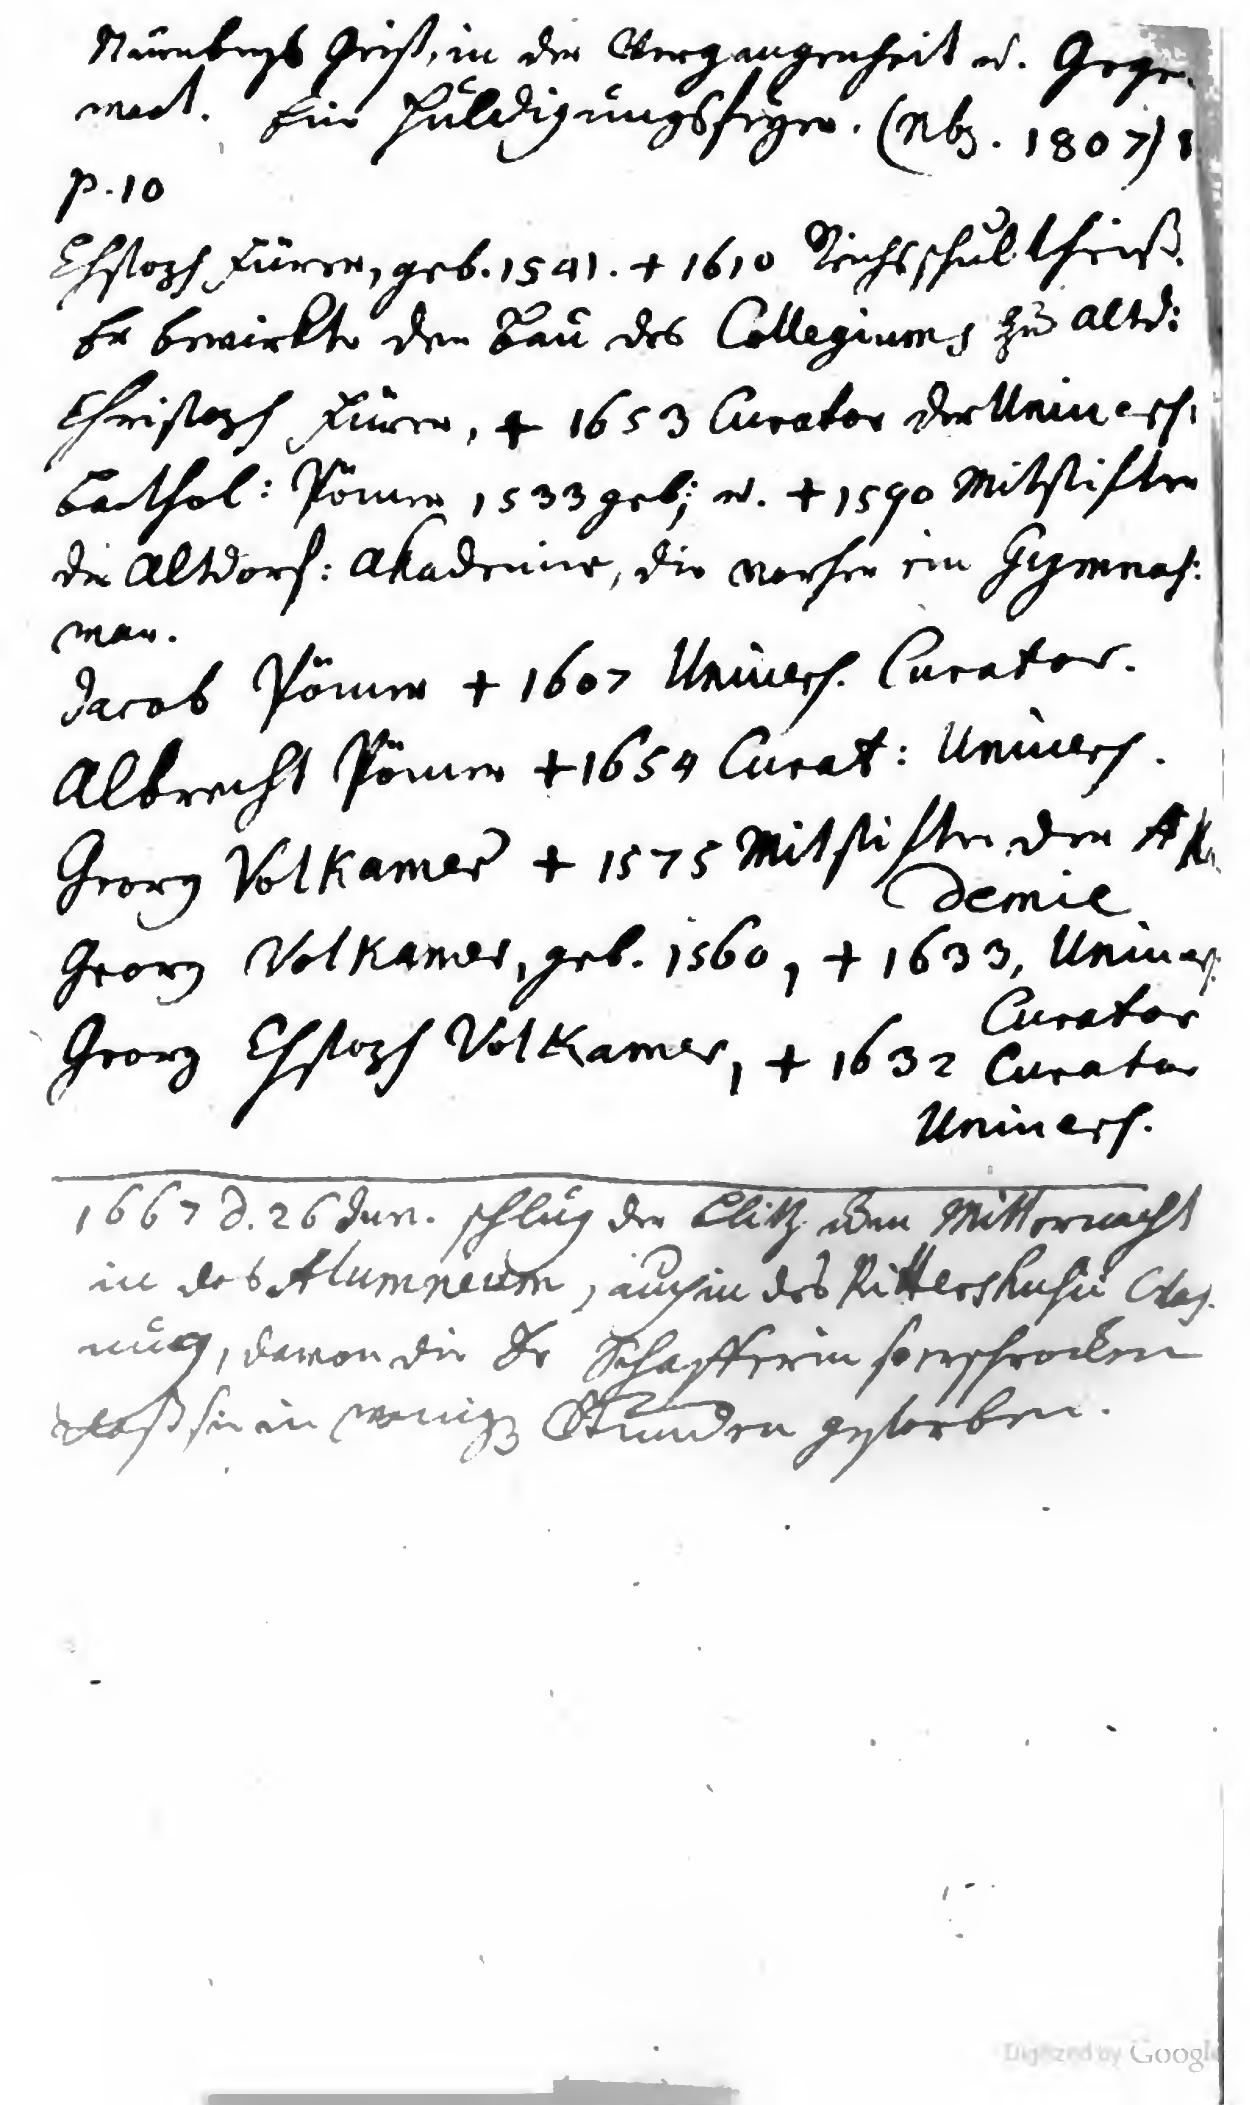 Nürnbergs Geist, in der Vergangenheit u. Gegen
wart. Eine Huldigungsfeyer. (Nbg. 1807) 8
p. 10
Chstoph Fürer, geb. 1541. + 1610 Reichsschultheiß.
Er bewirkte den Bau des Collegiums zu Altd:
Christoph Fürer, + 1653 Curator der Univers.
Barthol: Pömer 1533 geb; u. + 1590 Mitstifter
der Altdorf: Akademie, die vorher ein Gymnas:
war.
Jacob Pömer + 1607 Univers. Curator.
Albrecht Pömer + 1654 Curat: Univers.
Georg Volkamer + 1575 Mitstifter der Aka
demie
Georg Volkamer, geb. 1560, + 1633, Univers.
Curator
Georg Chstoph Volkamer, + 1632 Curator
Univers.
1667 d. 26 Jun. schlug der Blitz um Mitternacht
in das Alumneum, auch in des Rittershusii
, davon die Fr Schafferin so erschrocken
daß sie in wenig Stunden gestorben.
Digitized by Google